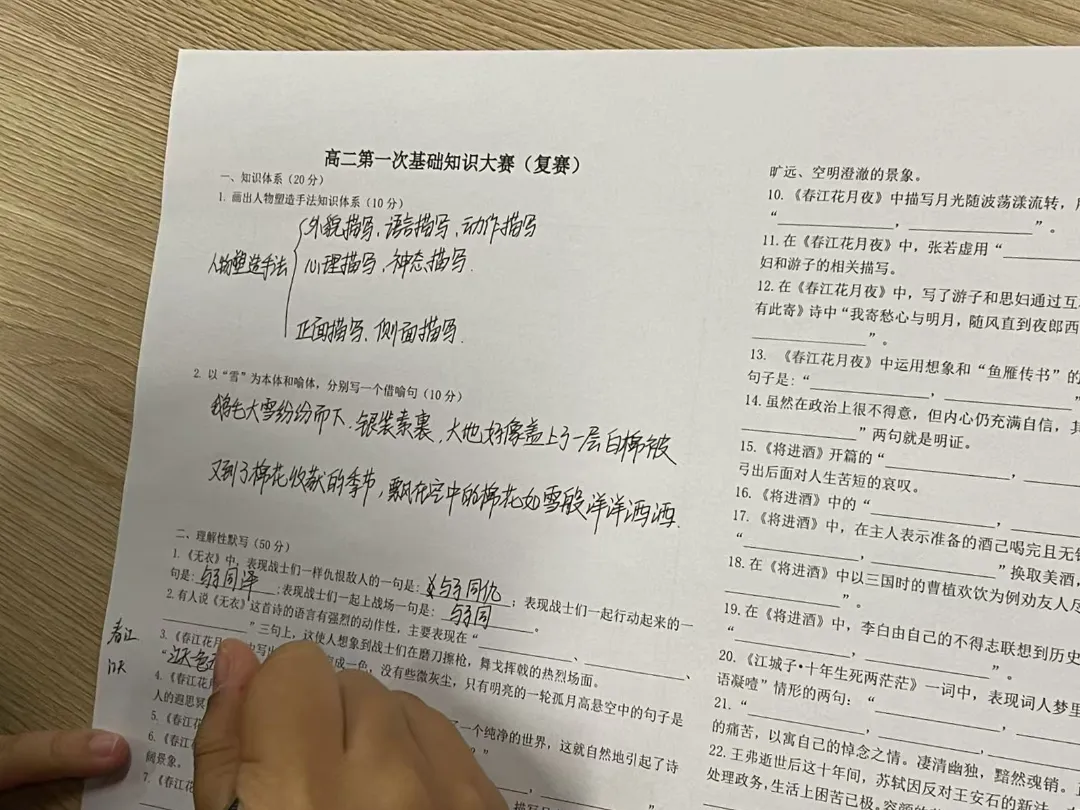 高二第一次基础知识大赛（复赛）
一、知识体系（20分）
1. 画出人物塑造手法知识体系（10分）
外貌描写、语言描写、动作描写
人物塑造手法
心理描写、神态描写.
正面描写、侧面描写.
2. 以“雪”为本体和喻体，分别写一个借喻句（10分）
鹅毛大雪纷纷而下.银装素裹，大地好像盖上了一层白棉被
又到了棉花收获的季节，飘在空中的棉花如雪般洋洋洒洒.
二、理解性默写（50分）
1.《无衣》中，表现战士们一样仇恨敌人的一句是: 与子同仇 ；表现战士们一起行动起来的一
句是: 与子同泽 ;表现战士们一起上战场一句是: 与子同 。
2.有人说《无衣》这首诗的语言有强烈的动作性，主要表现在“
”三句上，这使人想象到战士们在磨刀擦枪，舞戈挥戟的热烈场面。
3.《春江花月
成一色，没有些微灰尘，只有明亮的一轮孤月高悬空中的句子是
“江天
春江
4.《春江花月
了一个纯净的世界，这就自然地引起了诗
人的遐思冥
5.《春江
6.《春江
阔景象。
7.《春江花
旷远、空明澄澈的景象。
10.《春江花月夜》中描写月光随波荡漾流转，
“ ， ”。
11.在《春江花月夜》中，张若虚用“
妇和游子的相关描写。
12.在《春江花月夜》中，写了游子和思妇通过互
有此寄》诗中“我寄愁心与明月，随风直到夜郎西
”。
13. 《春江花月夜》中运用想象和“鱼雁传书”的
句子是:“ ， ”
14.虽然在政治上很不得意，但内心仍充满自信，其
”两句就是明证。
15.《将进酒》开篇的“ ，
弓出后面对人生苦短的哀叹。
16.《将进酒》中的“ ，
17.《将进酒》中，在主人表示准备的酒己喝完且无钱
“ ， ”换取美酒，
18.在《将进酒》中以三国时的曹植欢饮为例劝友人尽
”。
19.在《将进酒》中，李白由自己的不得志联想到历史
“ ， ”。
20.《江城子•十年生死两茫茫》一词中，表现词人梦里
语凝噎”情形的两句：“ ，
21.“ ，
的痛苦，以寓自己的悼念之情。凄清幽独，黯然魂销。
22.王弗逝世后这十年间，苏轼因反对王安石的新法
处理政务，生活上困苦己极